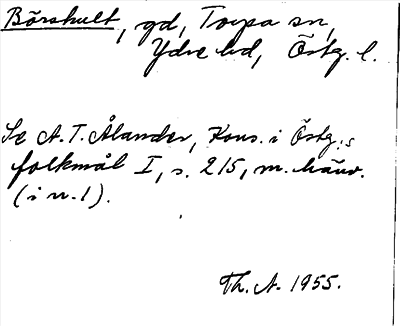 Börskult, gd, Torpa sn,
Ydre hd, Östg. l.
Se A. T. Ålander, Kons. i Östg:s
folkmål I, s. 215, m. hänv.
(i n. 1).
Th. A. 1955.